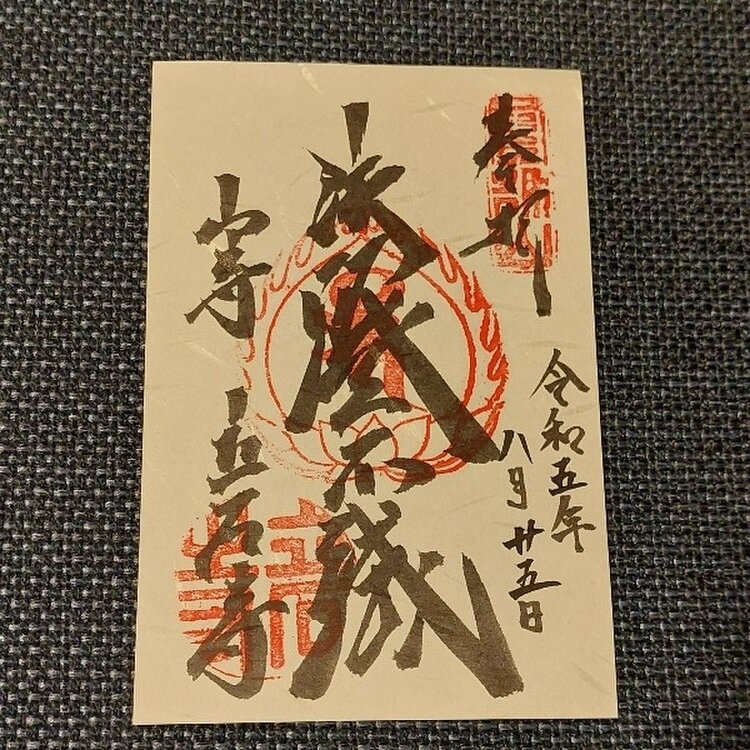 奉拝
令和五年
八月廿五日
法燈不滅
山寺 立石寺